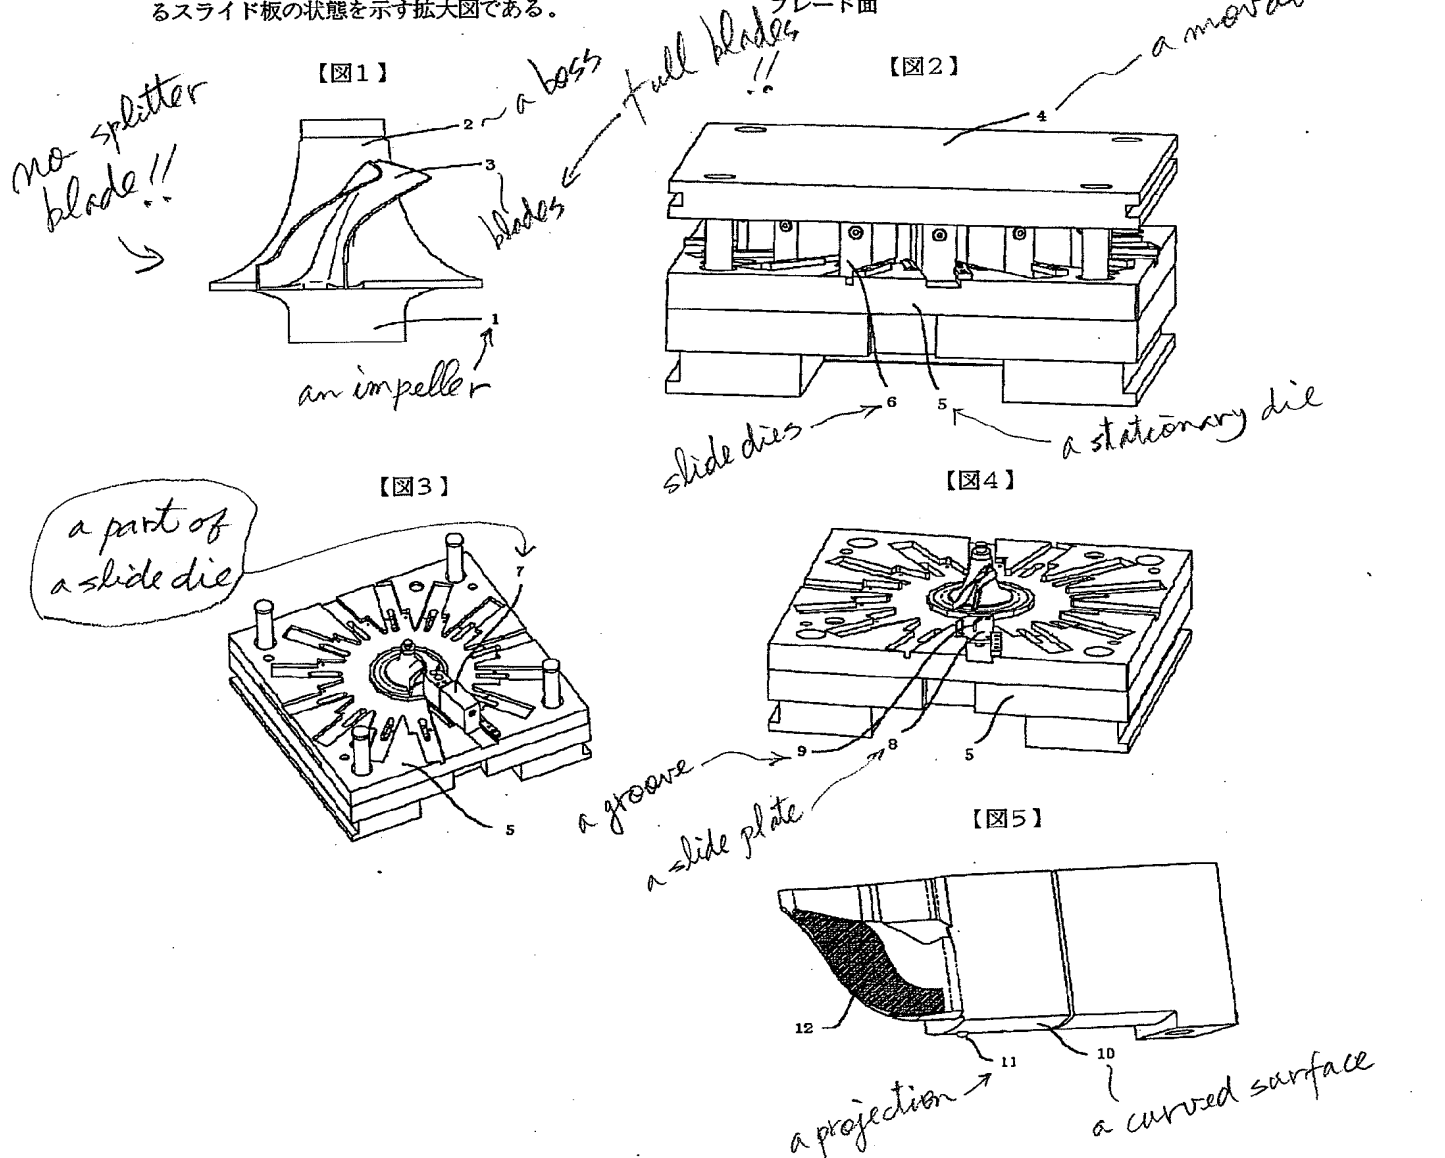 るスライド板の状態を示す拡大図である。
ブレード面
【図1】
no splitter
blade!!
2
a boss
full blades
!!
3
blades
1
an impeller
【図2】
a mova
4
6
5
slide dies
a stationary die
【図3】
a part of
a slide die
7
5
【図4】
9
8
5
a groove
a slide plate
【図5】
12
11
10
a projection
a curved surface